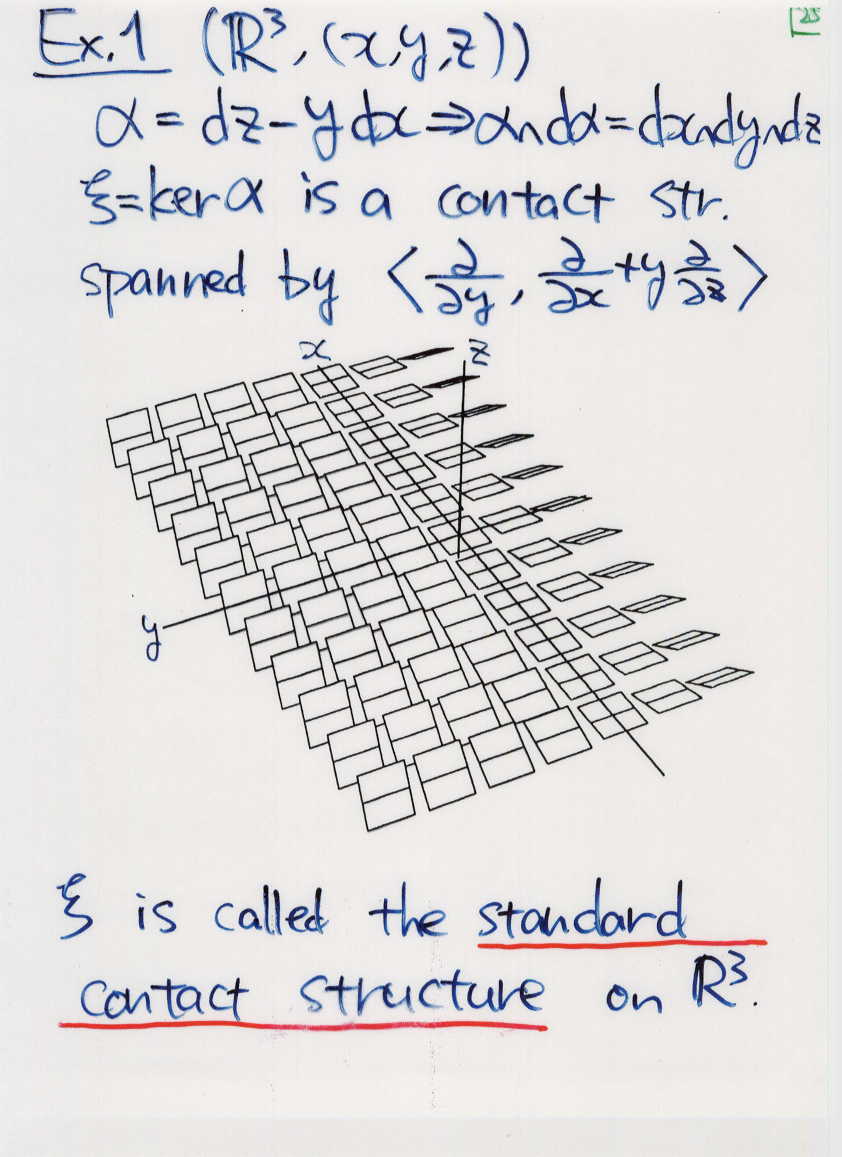 Ex.1 (ℝ³, (x,y,z))
α = dz - ydx ⇒ α∧dα = dx∧dy∧dz
ξ = ker α is a contact str.
spanned by ⟨∂/∂y, ∂/∂x + y ∂/∂z⟩
x
z
y
ξ is called the standard
contact structure on ℝ³.